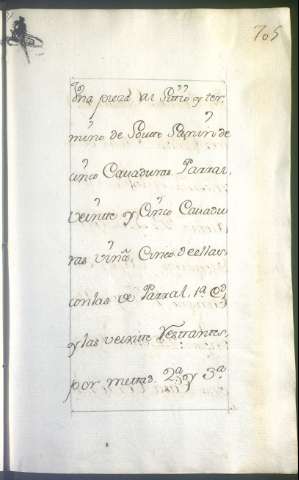 705
Una pieza al Sitio y ter.
mino de Pouere Panin de
cinco Cauaduras Parral,
veinte y Cinco Cauadu
ras, viña, Cinco de ellas
con las de Parral, 1ª Cd
y las veinte Restantes,
por mittad, 2ª y 3ª